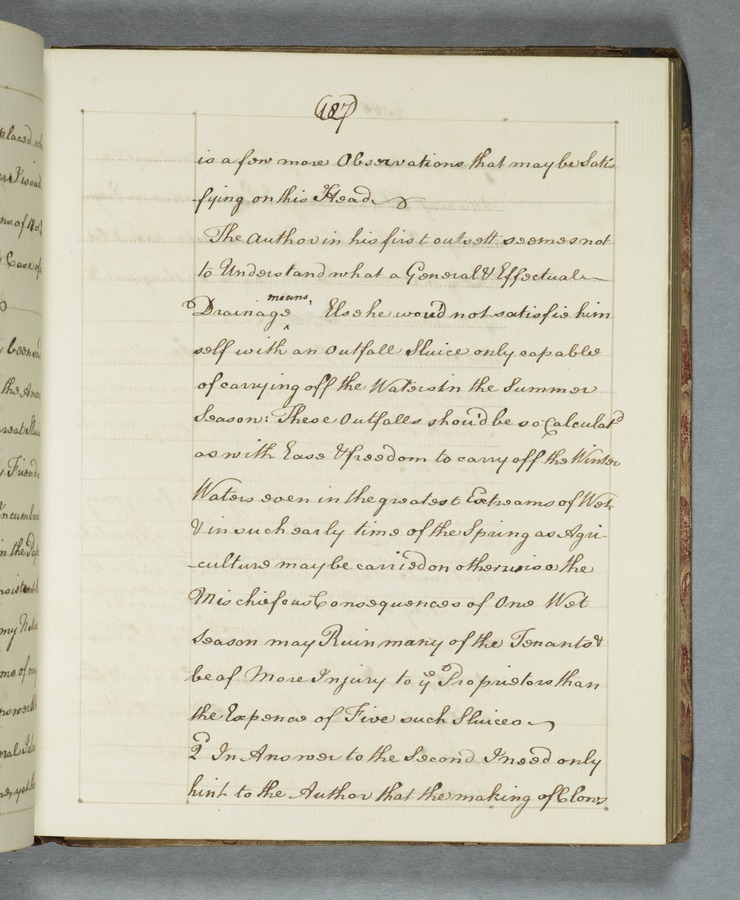 (187)
is a few more Observations that may be Satis
fying on this Head
The Author in his first outsett seemes not
to Understand what a General & Effectual
Drainage means, Else he wou'd not satisfie him
self with an outfall Sluice only capable
of carrying off the Waters in the Summer
Season: These Outfalls shou'd be so Calculatd
as with Ease & freedom to carry off the Winter
Waters even in the greatest Extreams of Wet
& in such early time of the Spring as Agri-
-culture may be carried on otherwise the
Mischiefous Consequences of One Wet
Season may Ruin many of the Tenants &
be of More Injury to ye Proprietors than
the Expence of Five such Sluices
2d In Answer to the Second I need only
hint to the Author that the making of Clows